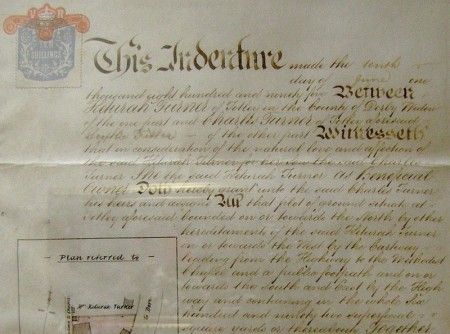 SHILLINGS
This Indenture made the tenth
day of June one
thousand eight hundred and ninety five Between
Keturah Turner of in the County of Derby Widow
of the one part and Charles Turner of aforesaid
of the other part Witnesseth
that in consideration of the natural love and affection of
the said Keturah Turner for her son the said Charles
Turner She the said Keturah Turner as Beneficial
Owner Doth hereby grant unto the said Charles Turner
his heirs and assigns All that plot of ground situate at
aforesaid bounded on or towards the North by other
hereditaments of the said Keturah Turner
on or towards the West by the Cartway
leading from the Highway to the Methodist
Chapel and a public footpath and on or
towards the South and East by the High
way and containing in the whole Six
hundred and ninety two superficial
square yards or thereabouts Together
Plan referred to
Mrs Keturah Turner